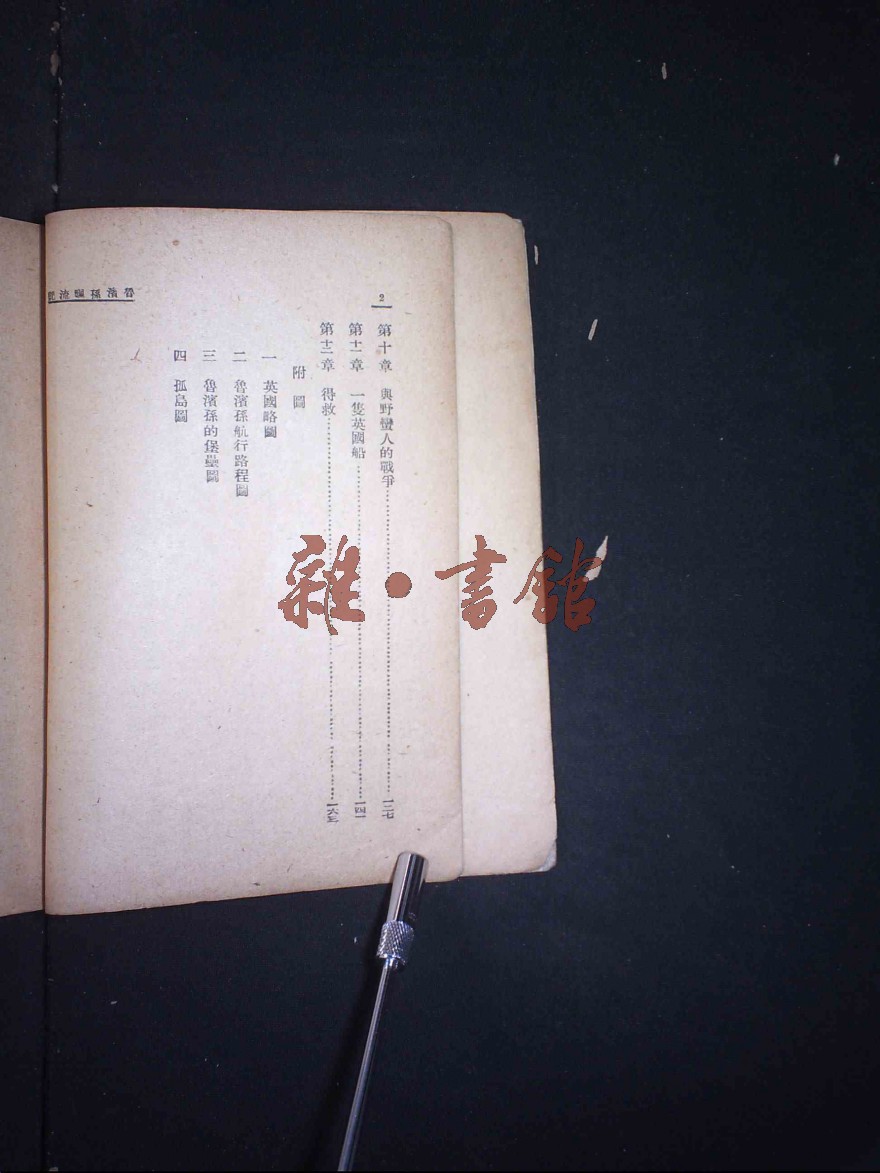 2
魯濱孫飄流記
第十章 與野蠻人的戰爭 一二七
第十一章 一隻英國船 一四一
第十二章 得救 一六五
附圖
一 英國略圖
二 魯濱孫航行路程圖
三 魯濱孫的堡壘圖
四 孤島圖
雜·書館